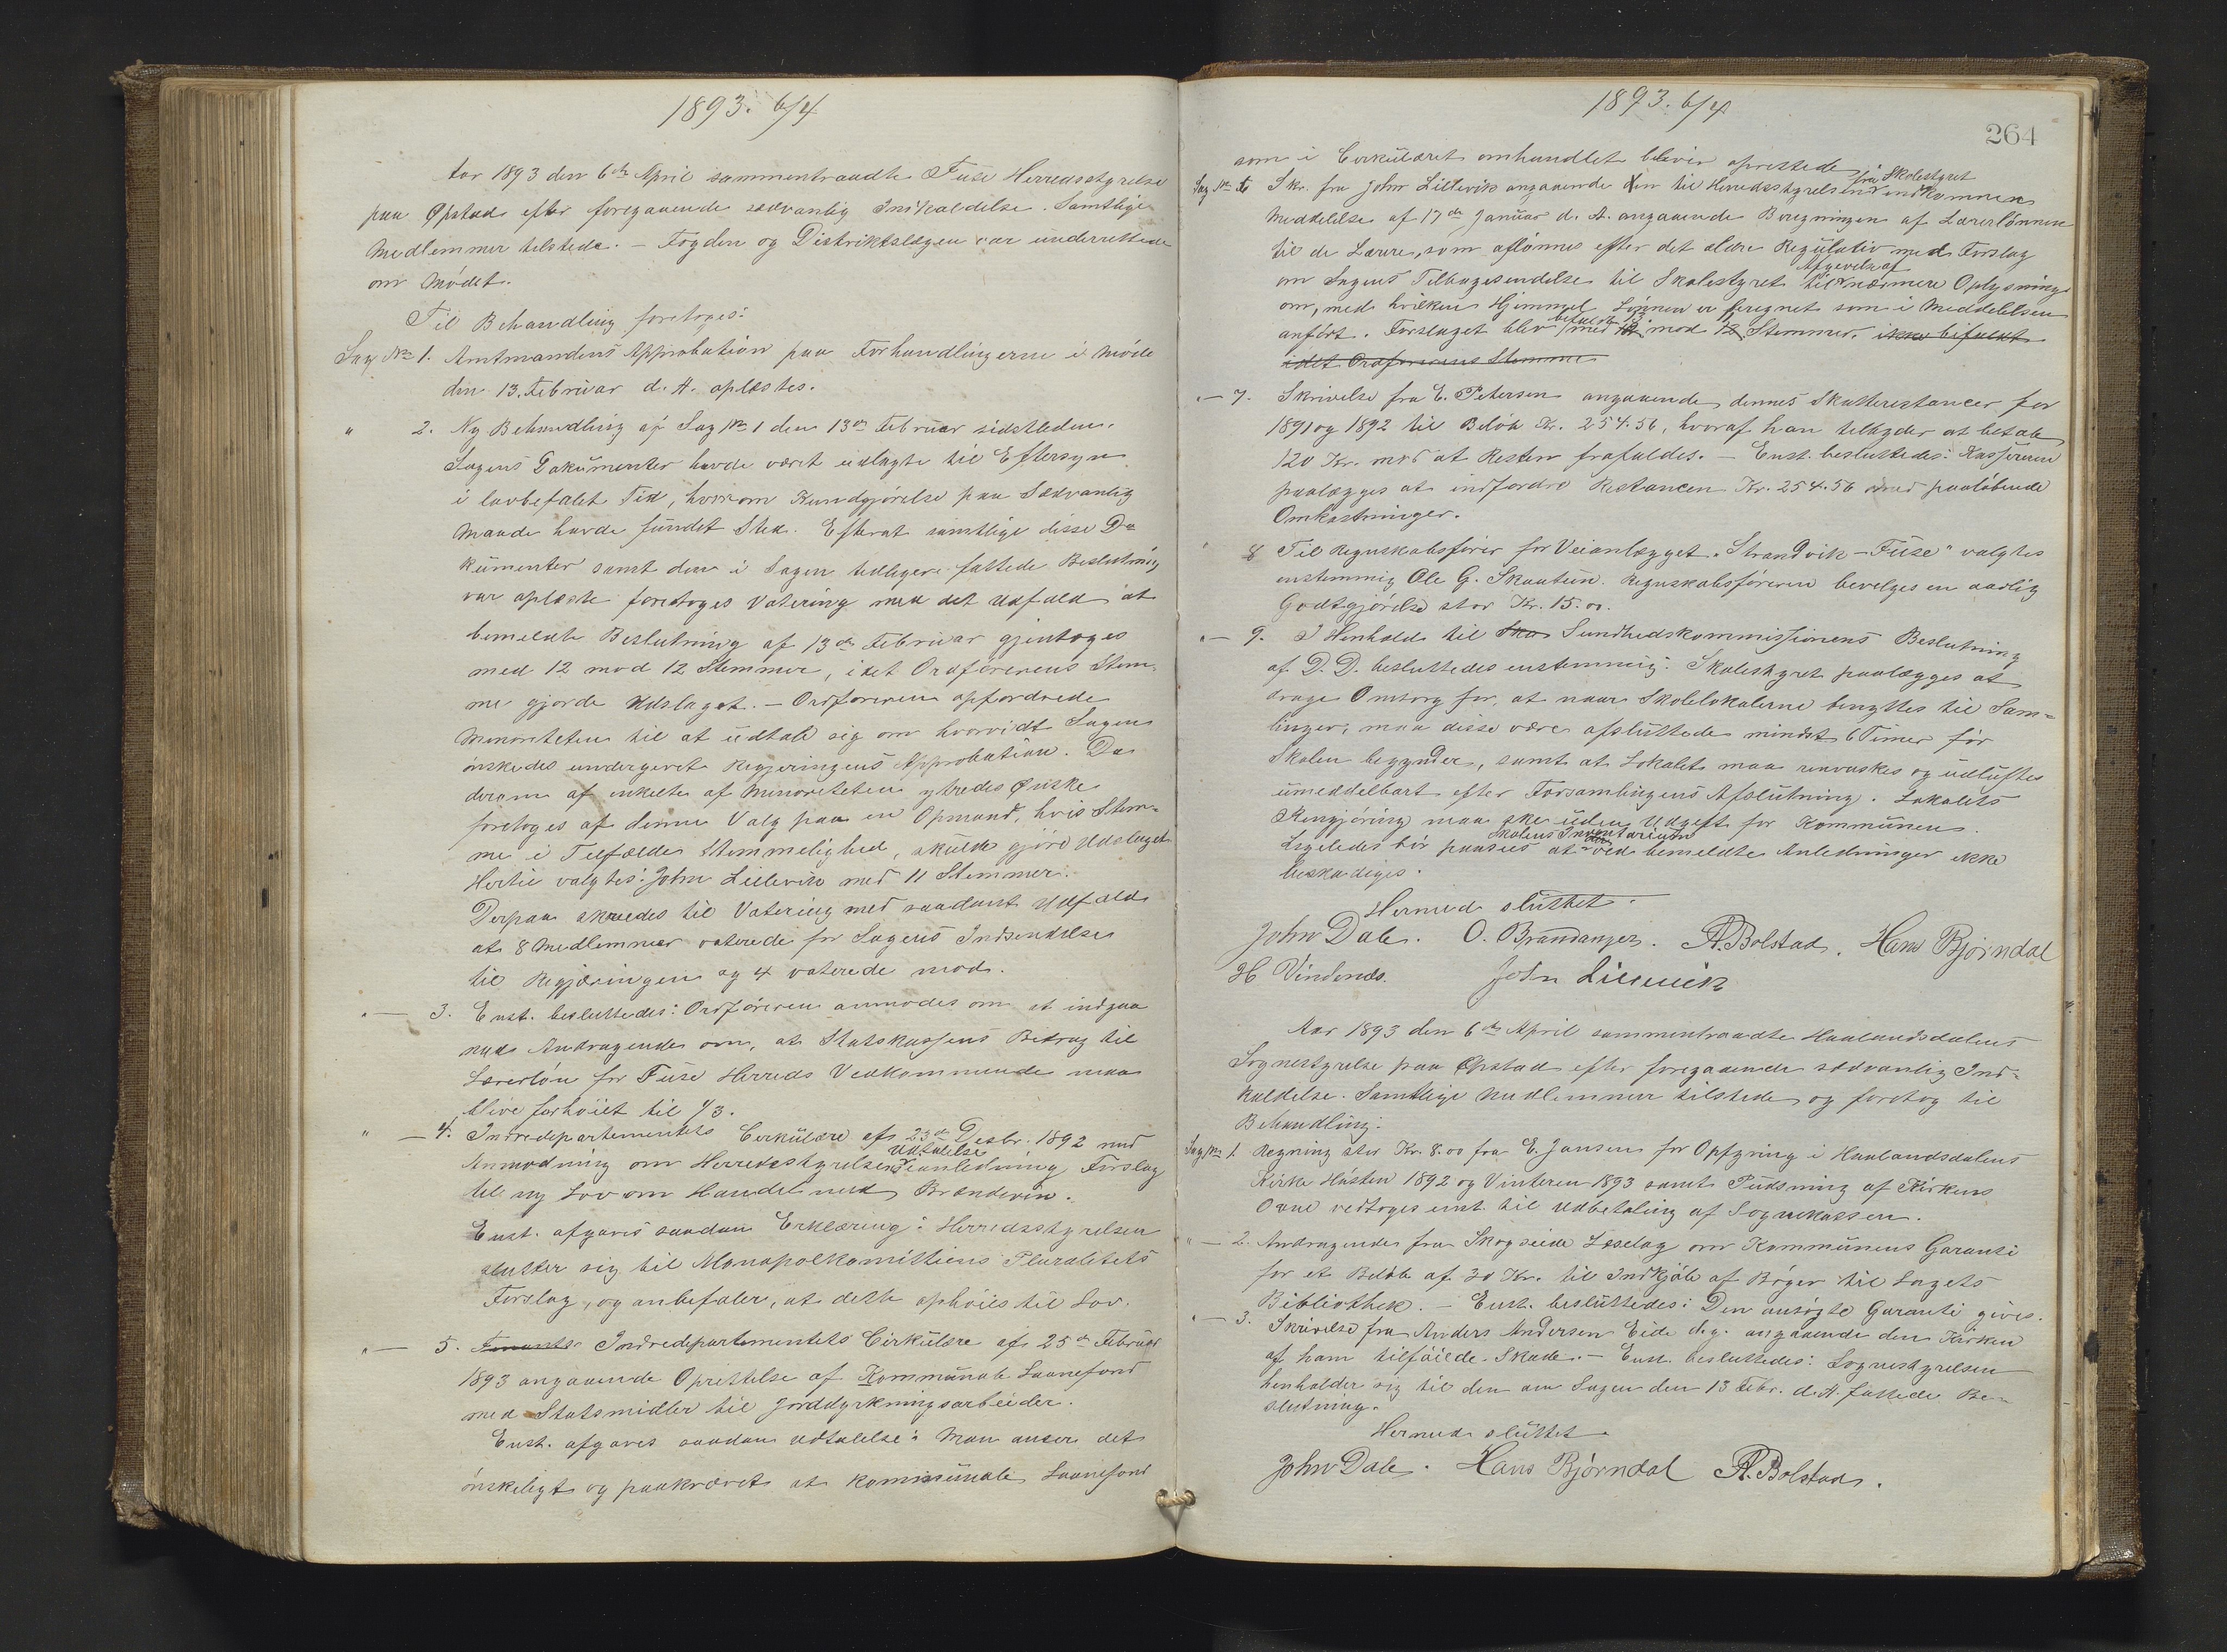 1893. 6/4
Aar 1893 den 6te April sammentraadte Fuse Herredsstyrelse
paa Øpstad efter foregaaende sædvanlig Indkaldelse. Samtlige
Medlemmer tilstede. – Fogden og Distriktslægen var underrettede
om Mødet.
Til Behandling foretoges:
Sag No 1. Amtmandens Approbation paa Forhandlingerne i Møde
den 13. Februar d. A. oplæstes.
" 2. Ny Behandling af Sag No 1 den 13de Februar sidstleden.
Sagens Dokumenter havde været udlagte til Eftersyn
i lovbefalet Tid, hvorom Kundgjørelse paa Sædvanlig
Maade havde fundet Sted. Efterat samtlige disse Do-
kumenter samt den i Sagen tidligere fattede Beslutning
var oplæste foretoges Votering med det Udfald at
bemeldte Beslutning af 13de Februar gjentoges
med 12 mod 12 Stemmer, idet Ordførerens Stem-
me gjorde Udslaget. – Ordføreren opfordrede
Minoriteten til at udtale sig om hvorvidt Sagen
ønskedes undergivet Regjeringens Approbation. Da
derom af enkelte af Minoriteten ytredes Ønske
foretoges af denne Valg paa en Opmand, hvis Stem-
me i Tilfælde Stemmelighed, skulde gjøre Udslaget.
Hertil valgtes: John Lillevik med 11 Stemmer.
Derpaa skredes til Votering med saadant Udfald
at 8 Medlemmer voterede for Sagens Indsendelse
til Regjeringen og 4 voterede mod.
" — 3. Enst. besluttedes: Ordføreren anmodes om at indgaa
med Andragende om, at Statskassens Bidrag til
Lærerløn for Fuse Herreds Vedkommende maa
blive forhøiet til 1/3.
" — 4. Indredepartementets Cirkulære af 23de Desbr. 1892 med
Udtalelse
Anmodning om Herredsstyrelsens i anledning Forslag
til ny Lov om Handel med Brændevin.
Enst. afgaves saadan Erklæring: Herredsstyrelsen
slutter sig til Monopolkomitteens Pluralitets
Forslag, og anbefaler, at dette ophøies til Lov.
" — 5. Finants Indredepartementets Cirkulære af 25de Februar
1893 angaaende Oprettelse af Kommunale Laanefond
med Statsmidler til Jorddyrkningsarbeider.
Enst. afgaves saadan Udtalelse: Man anser det
ønskeligt og paakrævet at kommunale Laanefond
1893. 6/4
264
som i Cirkulæret omhandlet bliver oprettede
fra Skolestyret
Sag No 6 Skr. fra John Lillevik angaaende den til Herredsstyrelsen indkomne
Meddelelse af 17de Januar d. A. angaaende Beregningen af Lærerlønnen
til de Lærere, som aflønnes efter det ældre Regulativ med Forslag
Afgivelse af
om Sagens Tilbagesendelse til Skolestyret til nærmere Oplysning
om, med hvilken Hjemmel Lønnen er beregnet som i Meddelelsen
bifaldt 13
anført. Forslaget blev med mod Stemmer. ikke bifaldt
idet Ordførerens Stemme
" — 7. Skrivelse fra E. Petersen angaaende dennes Skatterestancer for
1891 og 1892 til Beløb Kr. 254.56, hvoraf han tilbyder at betale
120 Kr. mod at Resten frafaldes. – Enst. besluttedes: Kassereren
paalægges at indfordre Restancen Kr. 254.56 med paaløbende
Omkostninger.
" 8 Til Regnskabsfører for Veianlægget "Strandvik – Fuse" valgtes
enstemmig Ole G. Skaatun. Regnskabsføreren bevilges en aarlig
Godtgjørelse stor Kr. 15.00.
" — 9. I Henhold til Sko Sundhedskommissionens Beslutning
af D. D. besluttedes enstemmig: Skolestyret paalægges at
drage Omsorg for, at naar Skolelokalerne benyttes til Sam-
linger, maa disse være afsluttede mindst 6 Timer før
Skolen begynder, samt at Lokalet maa renvaskes og udluftes
umiddelbart efter Forsamlingens Afslutning. Lokalets
Rengjøring maa ske uden Udgift for Kommunen.
Skolens Inventarium
Ligeledes bør paasees at ved bemeldte Anledninger ikke
beskadiges.
Hermed sluttet.
John Dale. O. Brandanger. A. Bolstad. Hans Bjørndal
H Vindenes. John Lillevick
Aar 1893 den 6te April sammentraadte Haalandsdalens
Sognestyrelse paa Øpstad efter foregaaende sædvanlig Ind-
kaldelse. Samtlige Medlemmer tilstede og foretog til
Behandling:
Sag No 1. Regning stor Kr. 8.00 fra E. Jansen for Opfyring i Haalandsdalens
Kirke Høsten 1892 og Vinteren 1893 samt Pudsning af Kirkens
Ovne vedtoges enst. til Udbetaling af Sognekassen.
" — 2. Andragende fra Skogseide Læselag om Kommunens Garanti
for et Beløb af 30 Kr. til Indkjøb af Bøger til Lagets
Bibliothek. – Enst. besluttedes: Den ansøgte Garanti gives.
" — 3. Skrivelse fra Anders Andersen Eide d.y. angaaende den Kirken
af ham tilføiede Skade. – Enst. besluttedes: Sognestyrelsen
henholder sig til den om Sagen den 13 Febr. d. A. fattede Be-
slutning.
Hermed sluttet.
John Dale. Hans Bjørndal A. Bolstad.